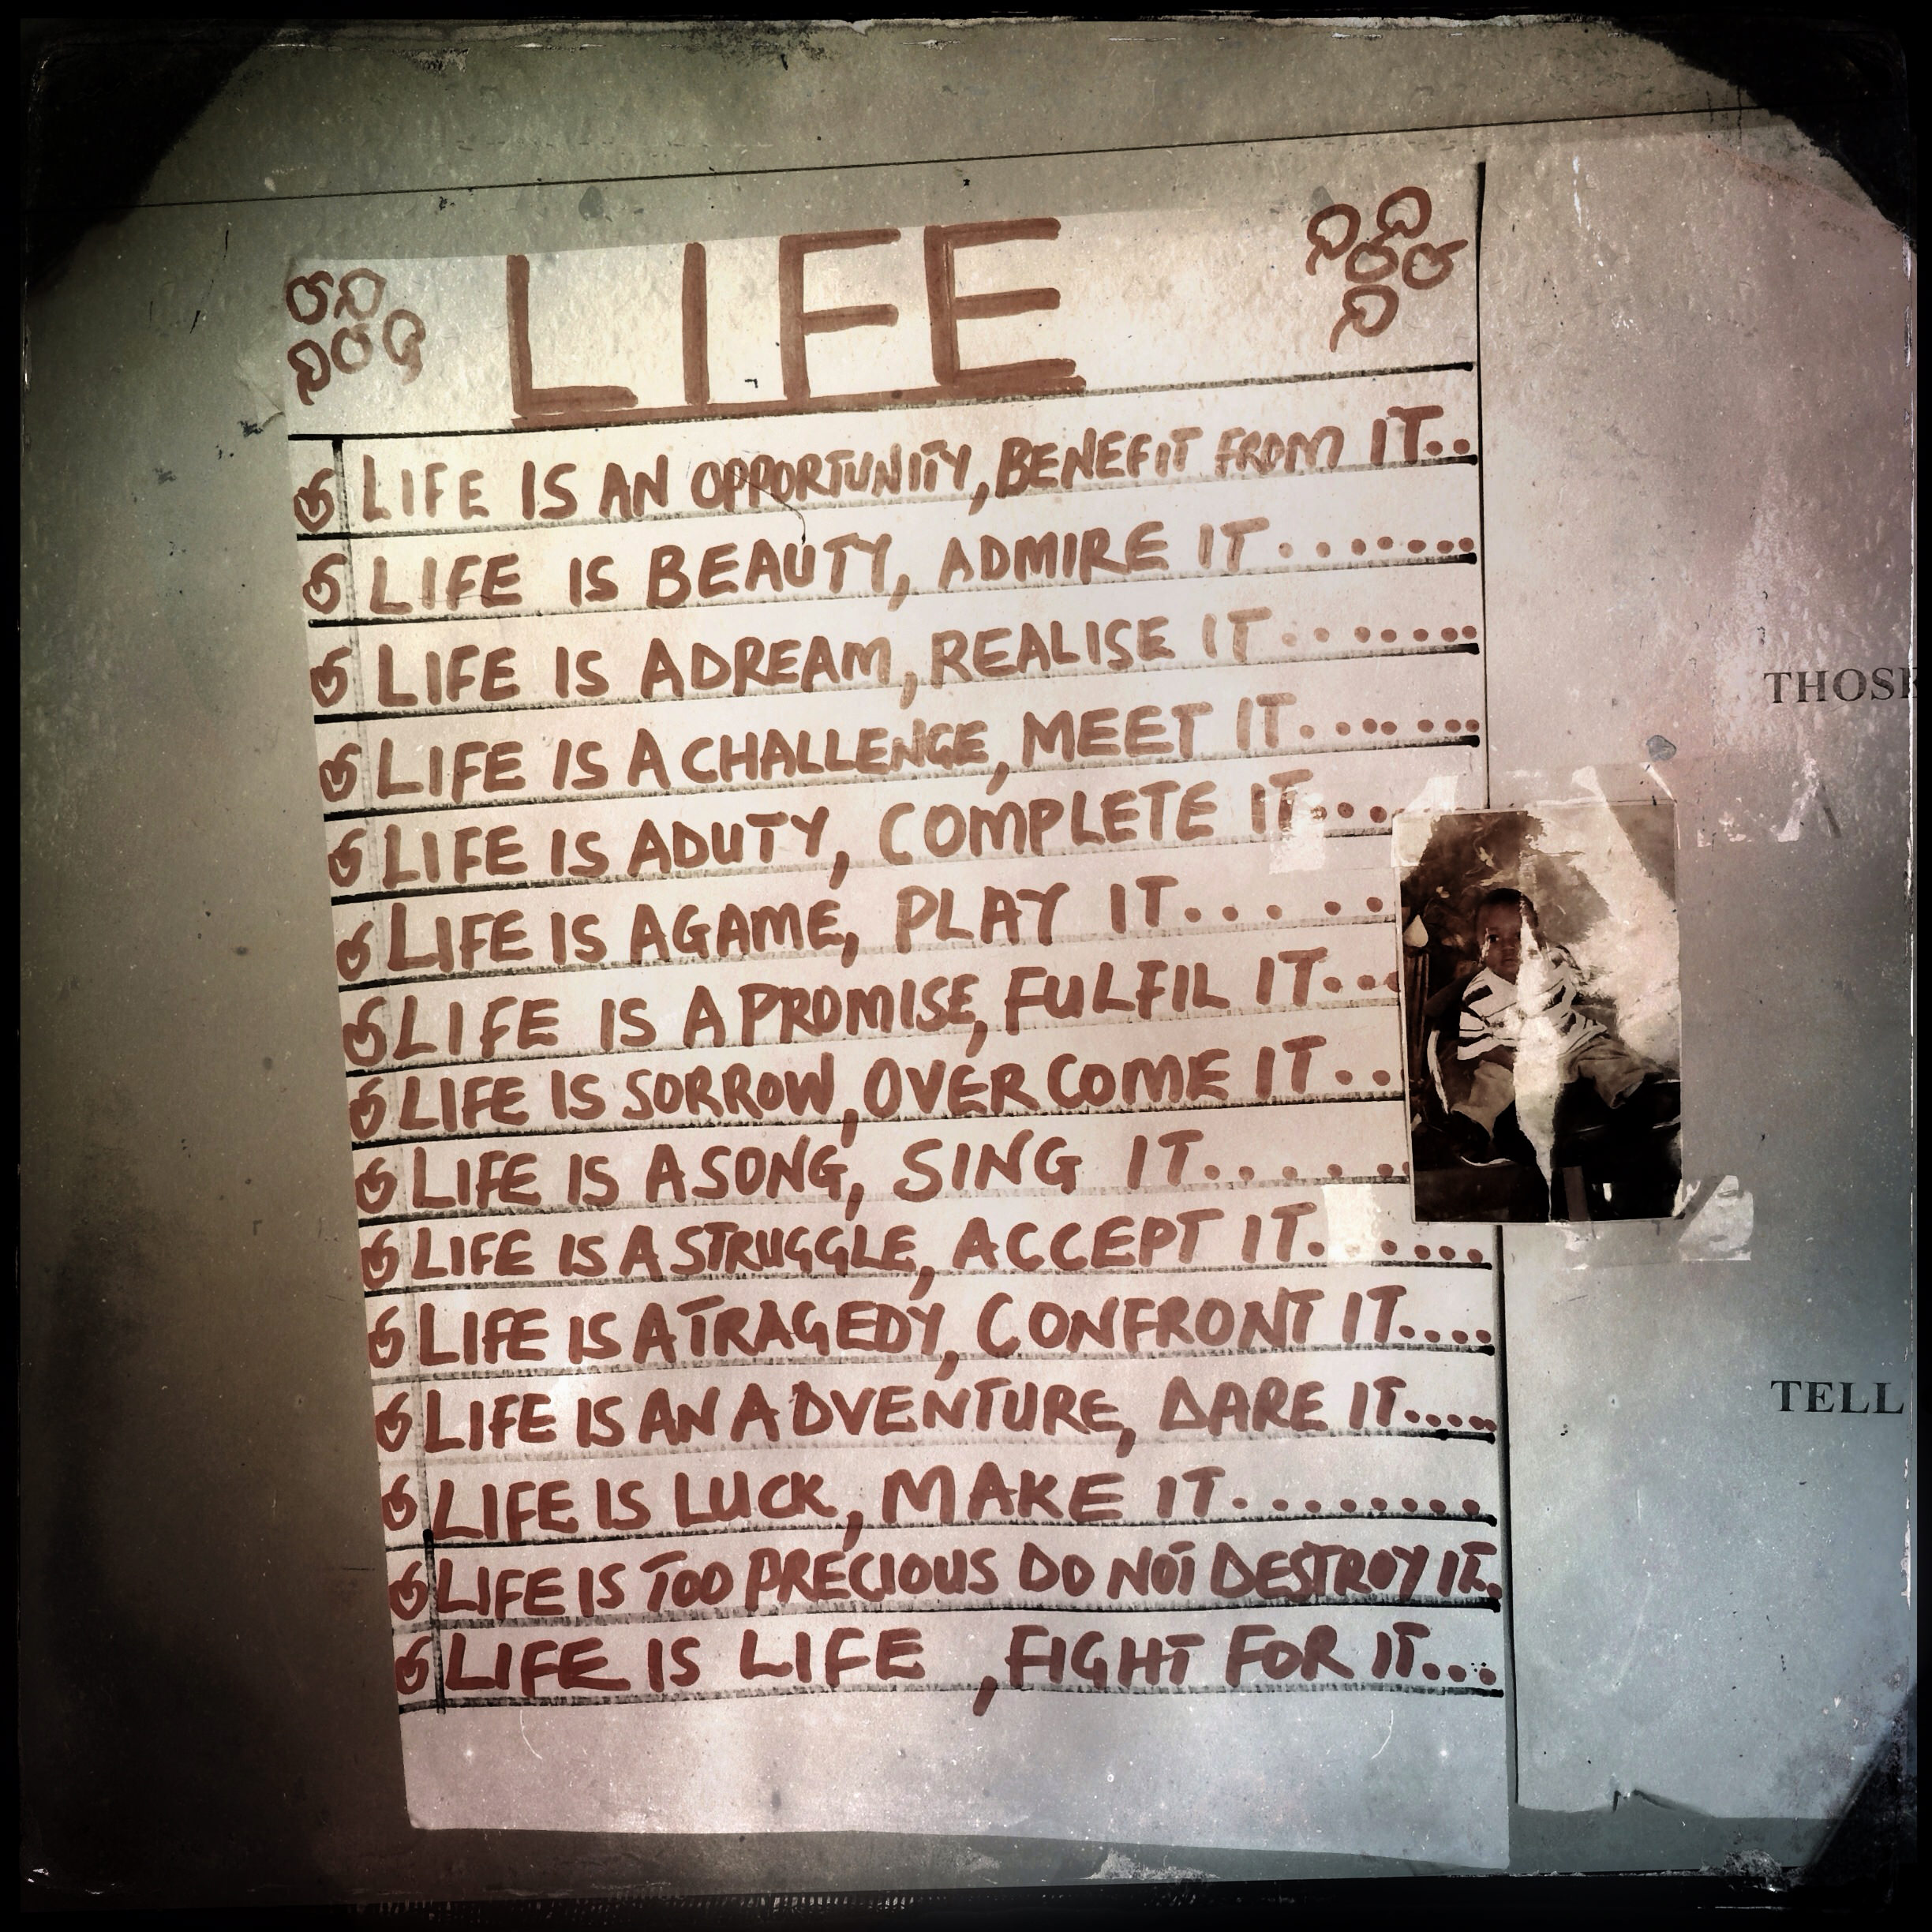 LIFE
LIFE IS AN OPPORTUNITY, BENEFIT FROM IT..
LIFE IS BEAUTY, ADMIRE IT........
LIFE IS A DREAM, REALISE IT........
LIFE IS A CHALLENGE, MEET IT........
LIFE IS A DUTY, COMPLETE IT....
LIFE IS A GAME, PLAY IT.....
LIFE IS A PROMISE, FULFIL IT...
LIFE IS SORROW, OVER COME IT..
LIFE IS A SONG, SING IT......
LIFE IS A STRUGGLE, ACCEPT IT.....
LIFE IS A TRAGEDY, CONFRONT IT....
LIFE IS AN ADVENTURE, DARE IT.....
LIFE IS LUCK, MAKE IT.........
LIFE IS TOO PRECIOUS DO NOT DESTROY IT.
LIFE IS LIFE , FIGHT FOR IT...
THOSE
TELL